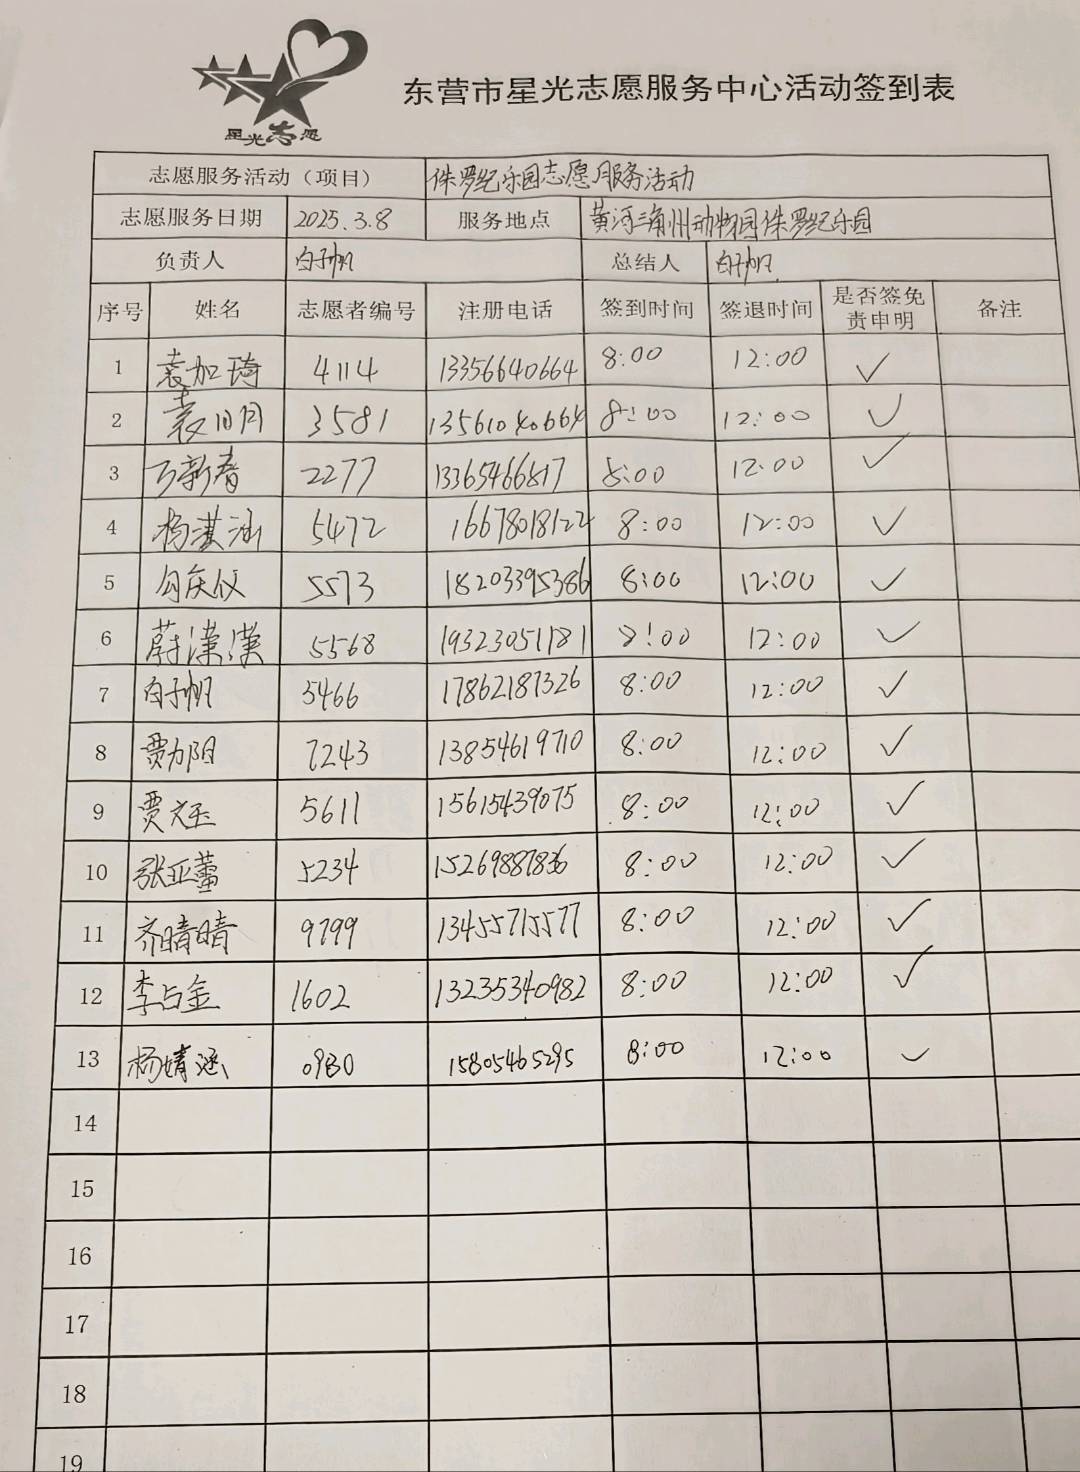 星光志愿
东营市星光志愿服务中心活动签到表
志愿服务活动（项目） 侏罗纪乐园志愿服务活动
志愿服务日期 2025.3.8 服务地点 黄河三角州动物园侏罗纪乐园
负责人 白子帆 总结人 白子帆
序号 姓名 志愿者编号 注册电话 签到时间 签退时间 是否签免责申明 备注
1 袁加琦 4114 13356640664 8:00 12:00 ✓
2 袁旧月 3581 13561040664 8:00 12:00 ✓
3 万新春 2277 13365466817 8:00 12:00 ✓
4 杨淇涵 5472 16678018122 8:00 12:00 ✓
5 勾庆仪 5573 18203395386 8:00 12:00 ✓
6 蔚潇潇 5568 19323051181 8:00 12:00 ✓
7 白子帆 5466 17862187326 8:00 12:00 ✓
8 贾力阳 7243 13854619710 8:00 12:00 ✓
9 贾文玉 5611 15615439075 8:00 12:00 ✓
10 张亚蕾 5234 15269887836 8:00 12:00 ✓
11 齐晴晴 9799 13455715577 8:00 12:00 ✓
12 李占金 1602 13235340982 8:00 12:00 ✓
13 杨婧涵 0930 15805465295 8:00 12:00 ✓
14
15
16
17
18
19